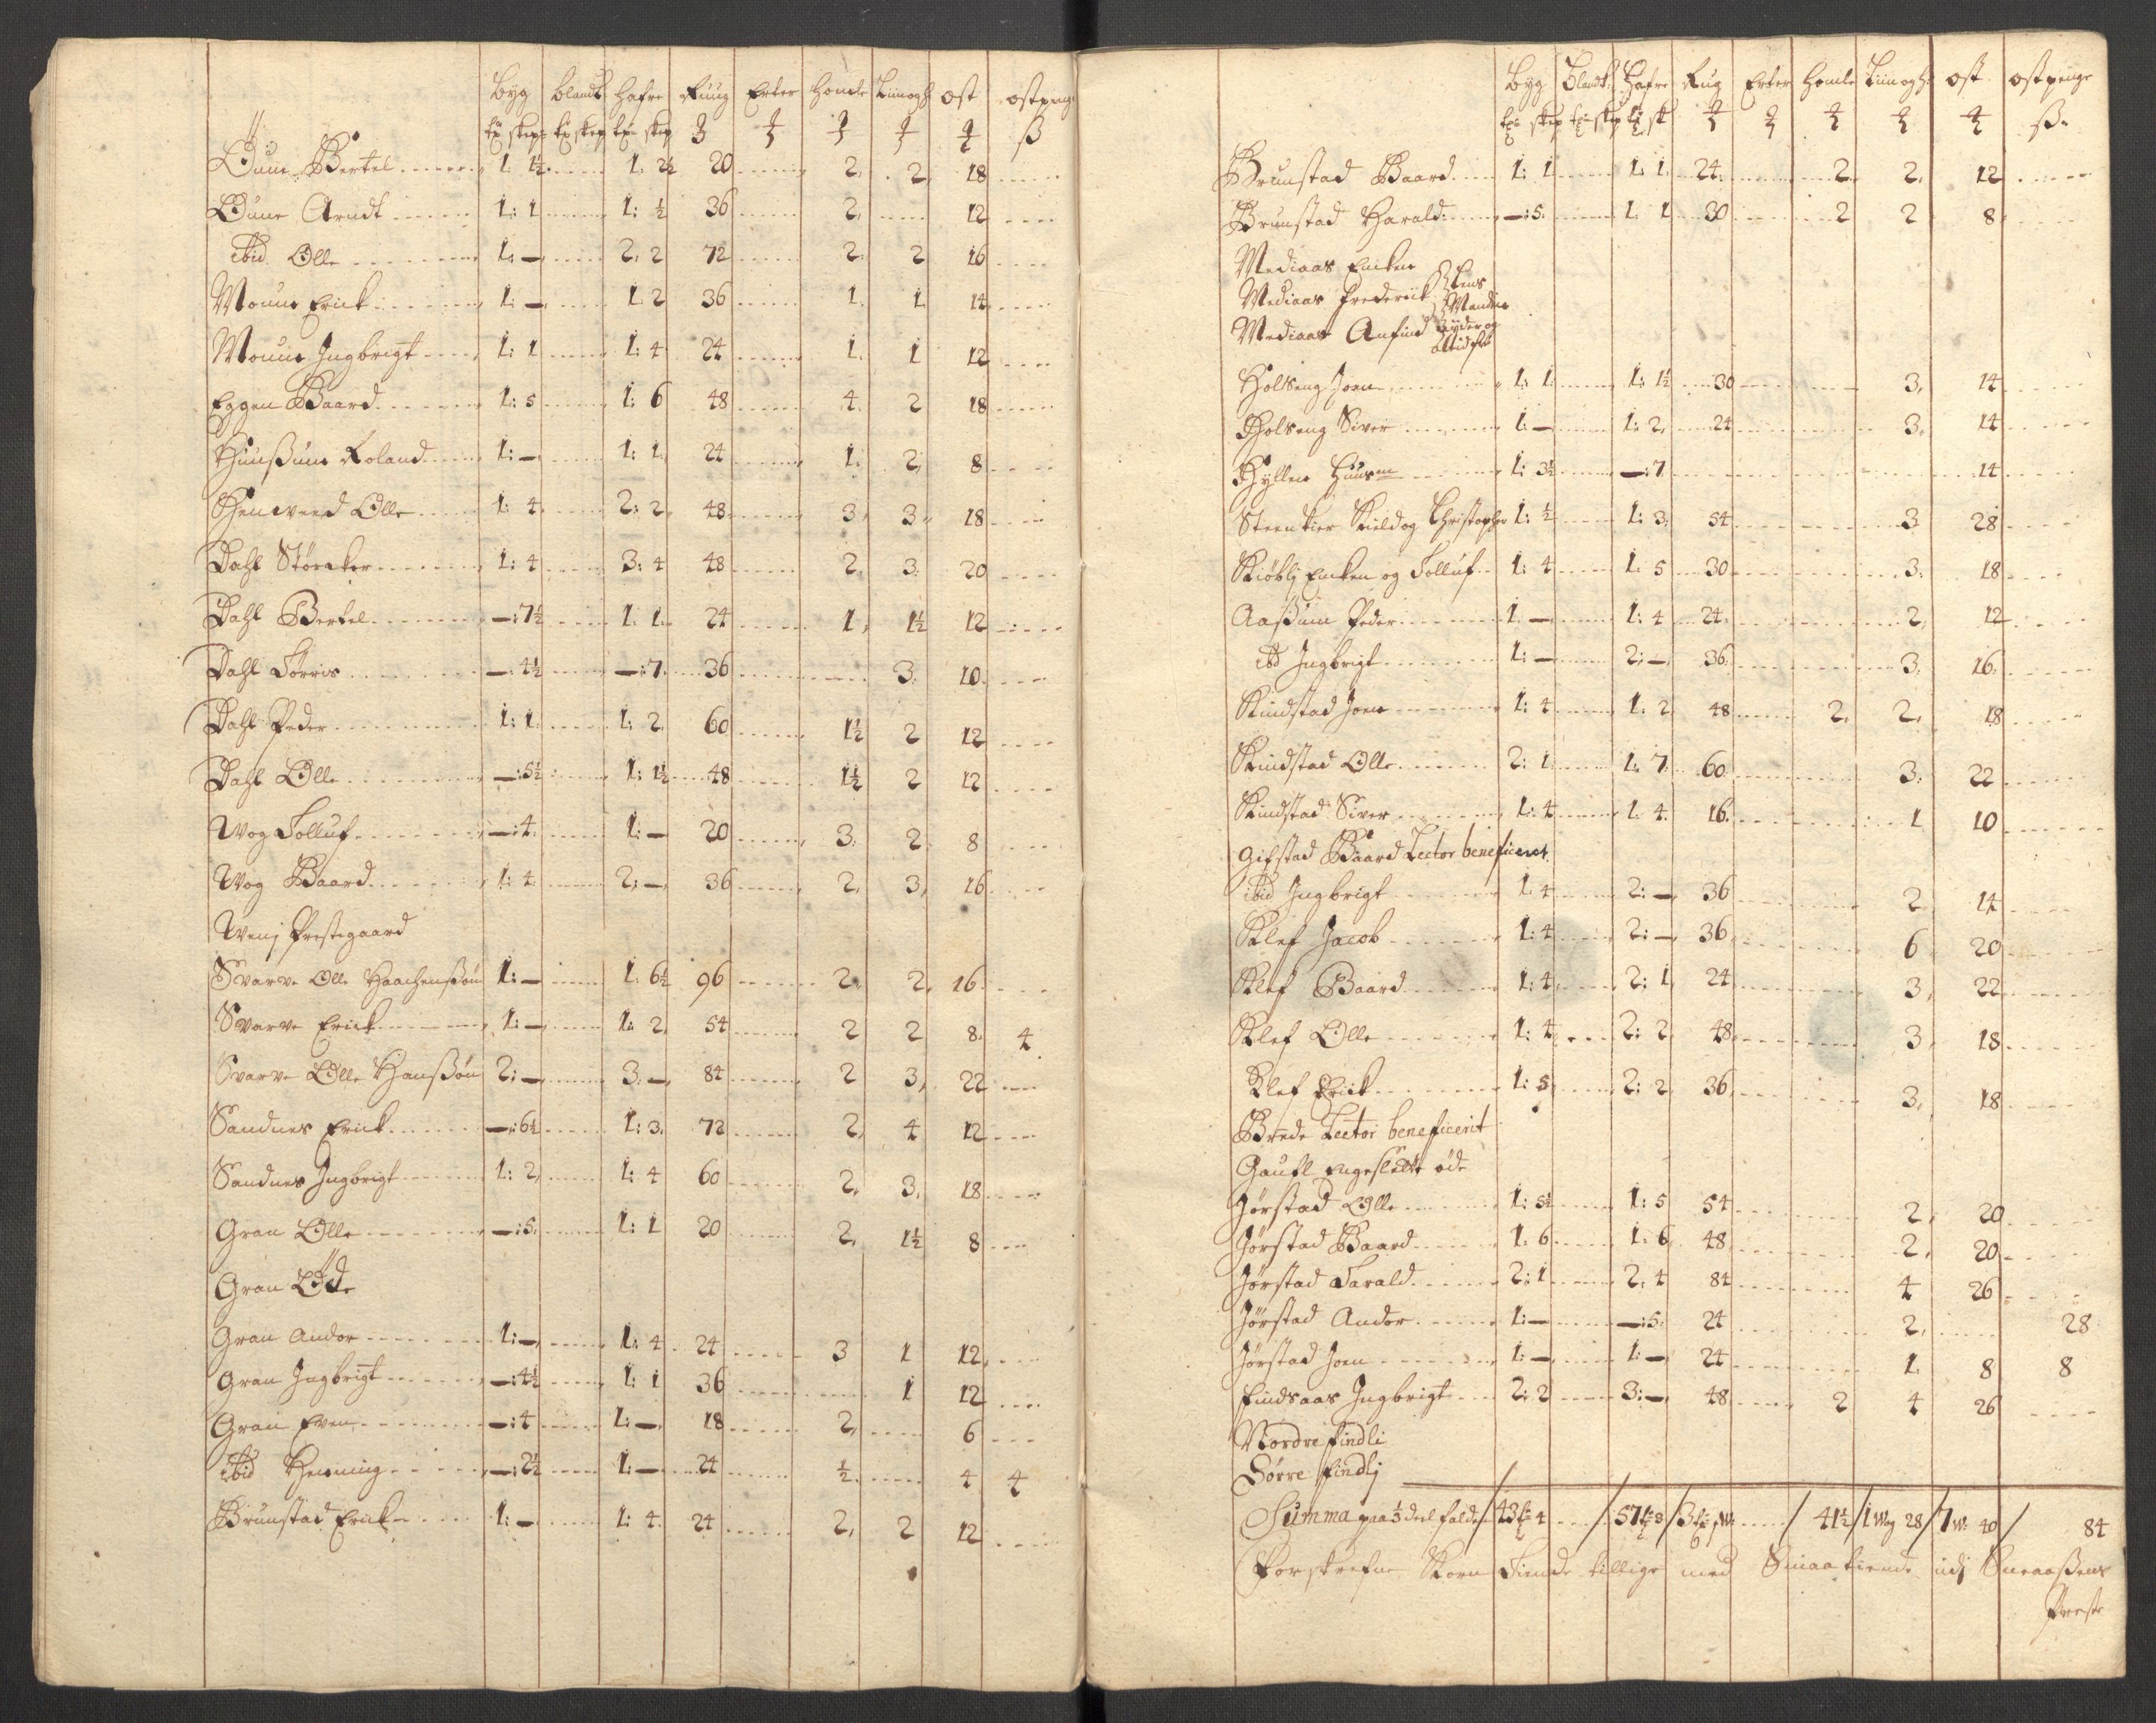 Byg blandk hafre Ruug Erter homle Liinogh ost ostpenge
tø skep tø skep tø skep ß
Duun Bertel 1. 1½ 1. 2½ 20 2. 2. 18
Duun Arndt 1: 1 1: ½ 36 2. 12
ibid Olle 1. — 2. 2 72 2. 2 16
Moum Erick 1. — 1. 2 36 1. 1 14
Moum Ingbrigt 1: 1 1: 4 24 1. 1 12
Eggen Baard 1: 5 1: 6 48 4. 2 18
Hunßum Roland 1: — 1: 1. 24 1. 2. 8
Olle 1: 4 2: 2. 48 3 3 18
Dahl Størcker 1: 4 3: 4 48 2. 3. 20
Dahl Bertel —: 7½ 1. 1. 24 1, 1½ 12
Dahl Torris —: 4½ —: 7. 36 3. 10
Dahl Peder 1: 1. 1: 2. 60 1½ 2 12
Dahl Olle —: 5½ 1: 1½ 48 1½ 2 12
Wog Tolluf —: 4. 1: — 20 3. 2 8
Wog Baard 1: 4 2: — 36 2. 3, 16
Wenj Prestegaard
Svarve Olle Haachenßøn 1: — 1. 6½ 96 2. 2. 16
Svarve Erick 1: — 1: 2. 54 2 2 8. 4
Svarve Olle Hanßøn 2: — 3. — 84 2 3, 22
Sandnes Erick —: 6½ 1: 3. 72 2, 4 12
Sandnes Ingbrigt 1: 2, 1: 4 60 2. 3. 18
Gran Olle —: 5. 1: 1 20 2, 1½ 8
Gran Øde
Gran Andor 1: — 1: 4 24 3 1 12
Gran Ingbrigt —: 4½ 1: 1 36 1 12
Gran Even —: 4 1: — 18 2, 6
ibid Henning —: 2½ 1: — 24 ½ 4 4
Brunstad Erick 1: — 1: 4. 24 2, 2 12
Byg Blandk Hafre Rug Erter homle Liin og h: ost ostpenge
tø skep tø skep tø sk ß
Brunstad Baard 1: 1 1: 1. 24 2. 2. 12
Brunstad Harald —: 5. 1. 1 30 2 2 8
Mediaas Encken
Mediaas Frederiik
Mediaas Anfind
Holseng Joen 1: 1. 1: 1½ 30 3. 14
Holseng Siver 1: — 1: 2. 24 3. 14
Hyllen Huus 1: 3½ —: 7 14
Steenkier Kield og Christopher 1: ½ 1: 3. 54 3 28
Skiøblj Encken og Tolluf 1: 4 1. 5 30 3. 18
Aaßum Peder 1. — 1: 4 24. 2. 12
ibd Ingbrigt 1: — 2: — 36. 3. 16.
Kindstad Joen 1: 4 1. 2. 48 2. 2. 18
Kindstad Olle 2: 1. 1. 7. 60 3. 22
Kindstad Siver 1: 4 1. 4. 16. 1 10
Gifstad Baard Lector beneficeret
ibid Ingbrigt 1. 4 2: — 36 2. 14
Klef Jacob 1: 4 2: — 36 6 20
Klef Baard 1: 4. 2: 1. 24 3. 22
Klef Olle 1: 4 2: 2. 48 3, 18
Klef Erick 1: 5 2: 2 36 3. 18
Brede Lector beneficerit
Gaufl Engeslette øde
Jørstad Olle 1: 5½ 1: 5 54 2, 20
Jørstad Baard 1. 6 1: 6 48 2. 20
Jørstad Tarald 2: 1 2. 4 84 4 26
Jørstad Andor 1: — —: 5. 24 2. 28
Jørstad Joen 1: — 1: — 24 1. 8 8
Findsaas Ingbrigt 2: 2 3: — 48 2 4 26
Nordre Findli
Sørre Findlj
Summa paa ⅓ deel falder / 43 tø 4 / 57 tø 3 / 3 tø / 41½ / 1 Wog 28 / 7 W: 40 / 84
Forskrefne Korn Tiende tillige med Smaatiende udj Sneaaßens
Preste